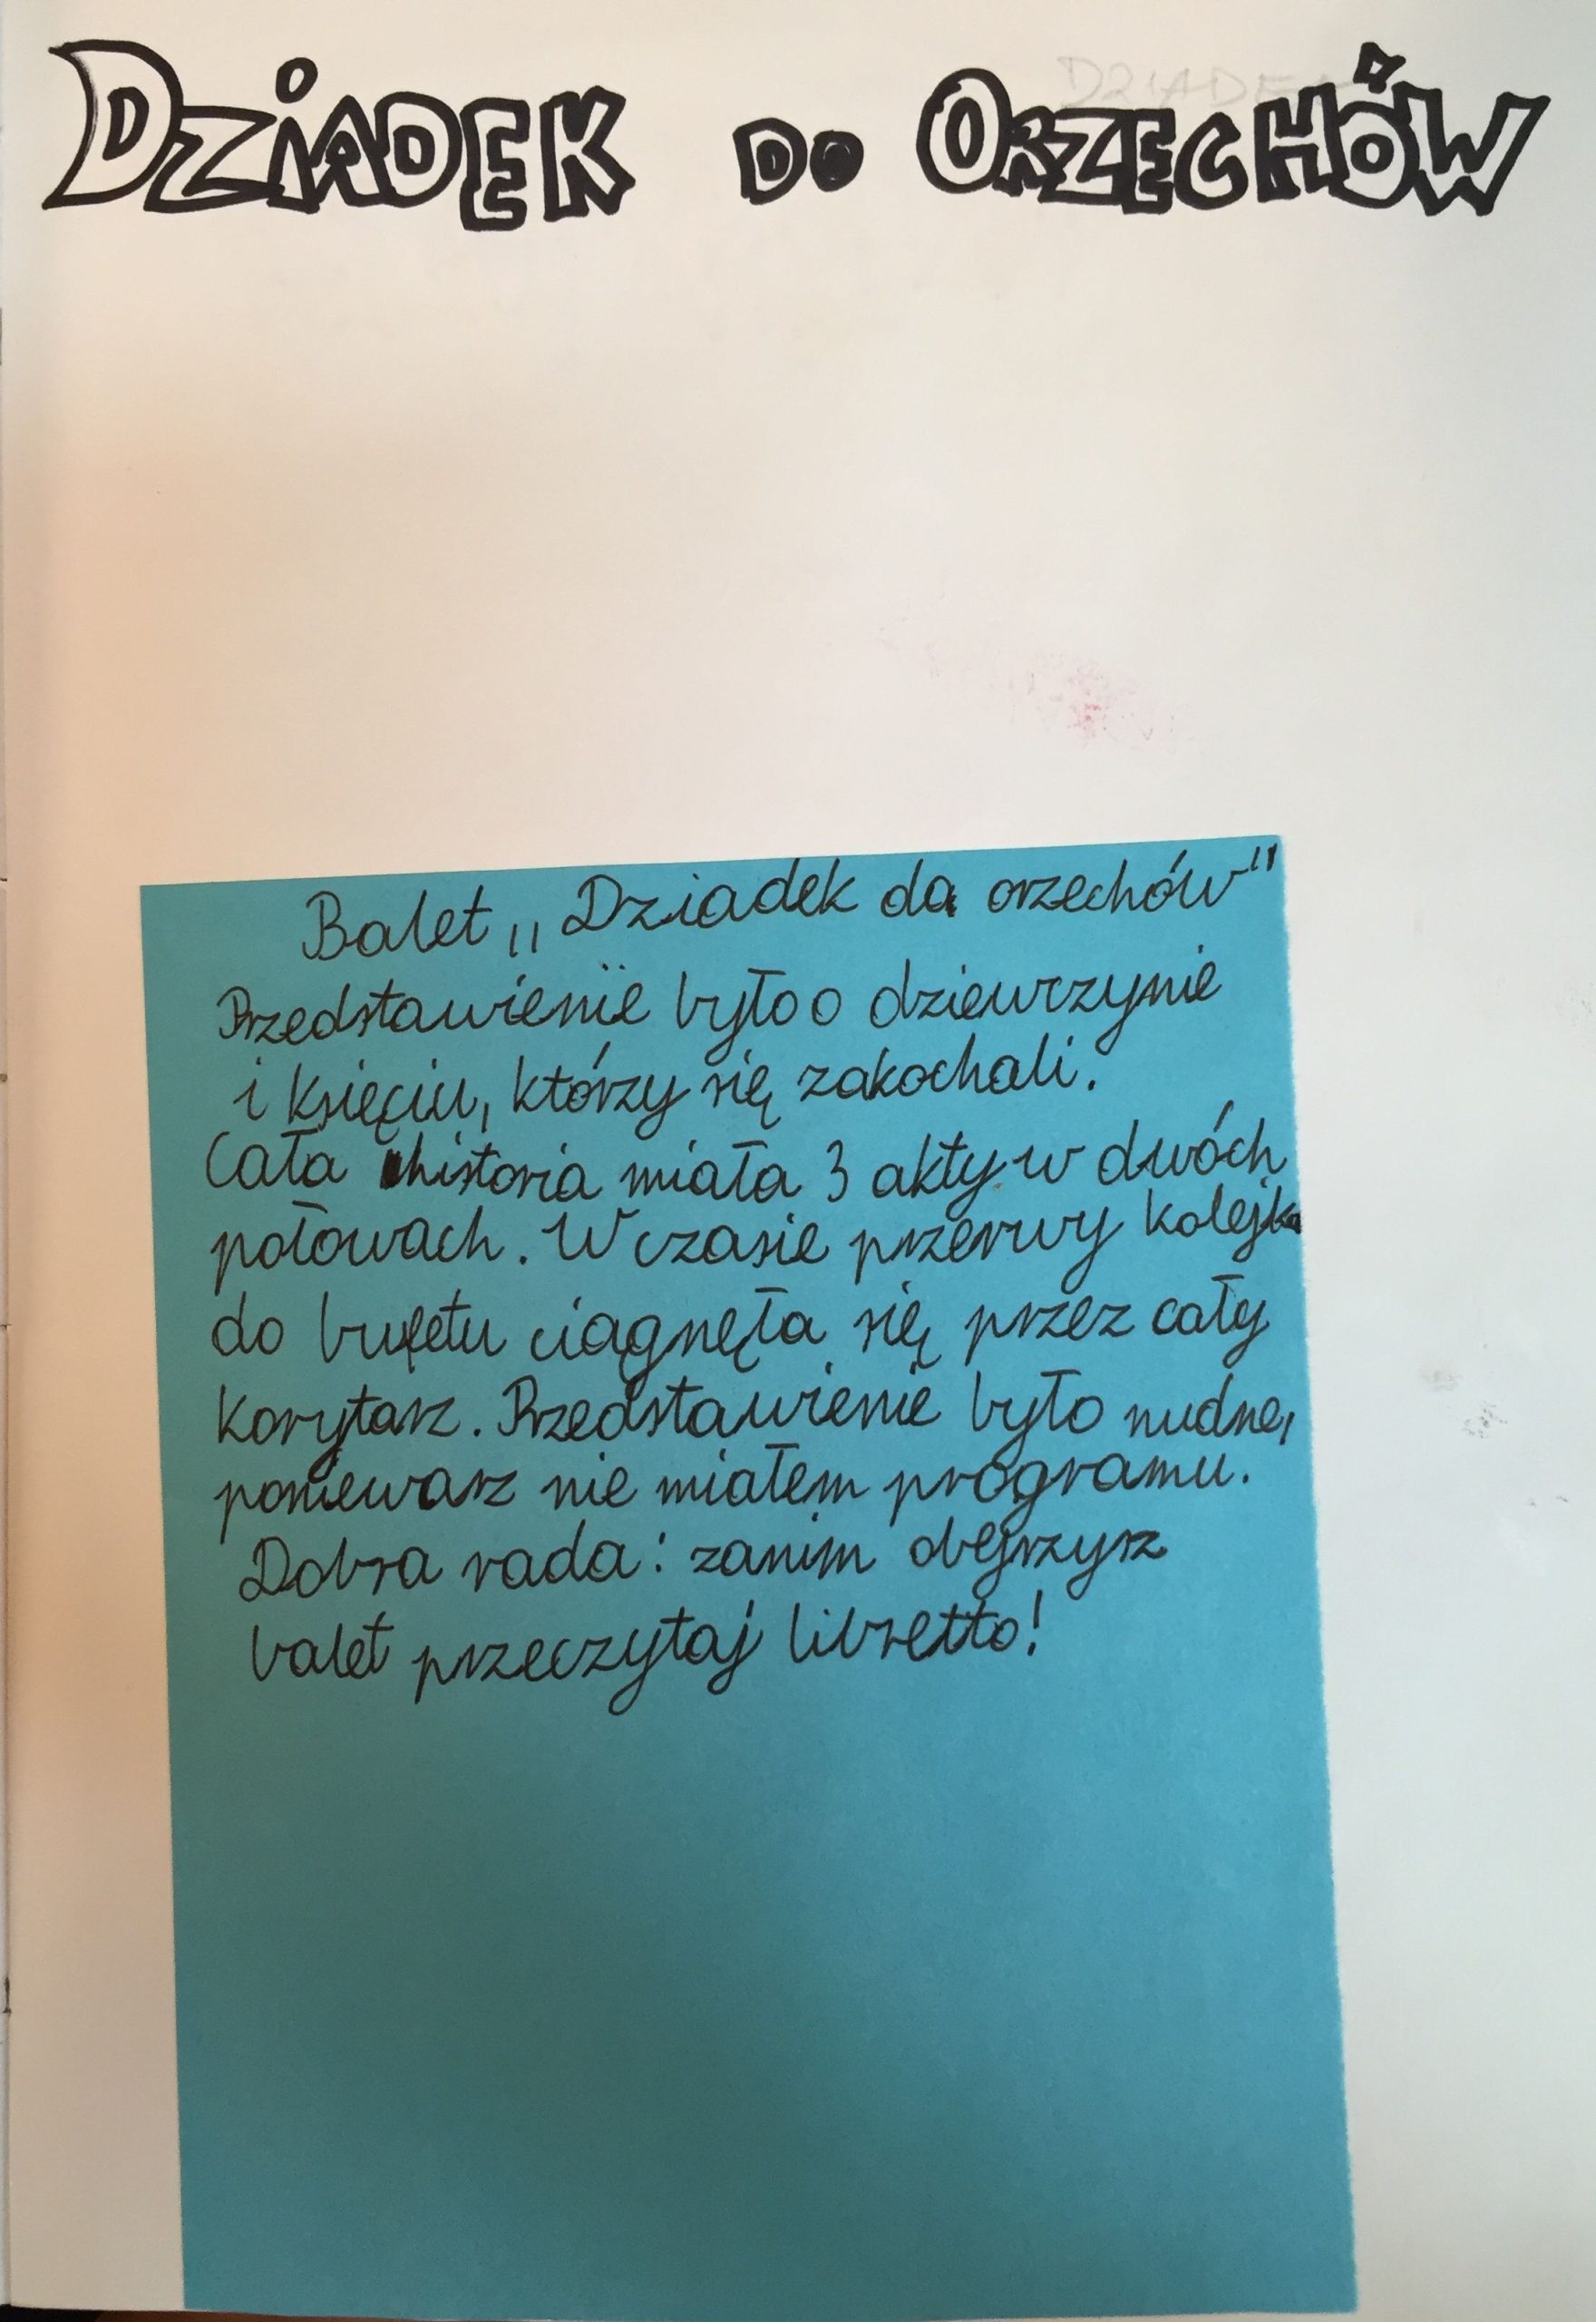 DZiADEK DO ORZECHÓW
DZIADEK
Balet „Dziadek do orzechów"
Przedstawienie było o dziewczynie
i księciu, którzy się zakochali.
Cała historia miała 3 akty w dwóch
połowach. W czasie przerwy kolejka
do bufetu ciągnęła się przez cały
korytarz. Przedstawienie było nudne,
poniewarz nie miałem programu.
Dobra rada: zanim obejrzysz
balet przeczytaj libretto!